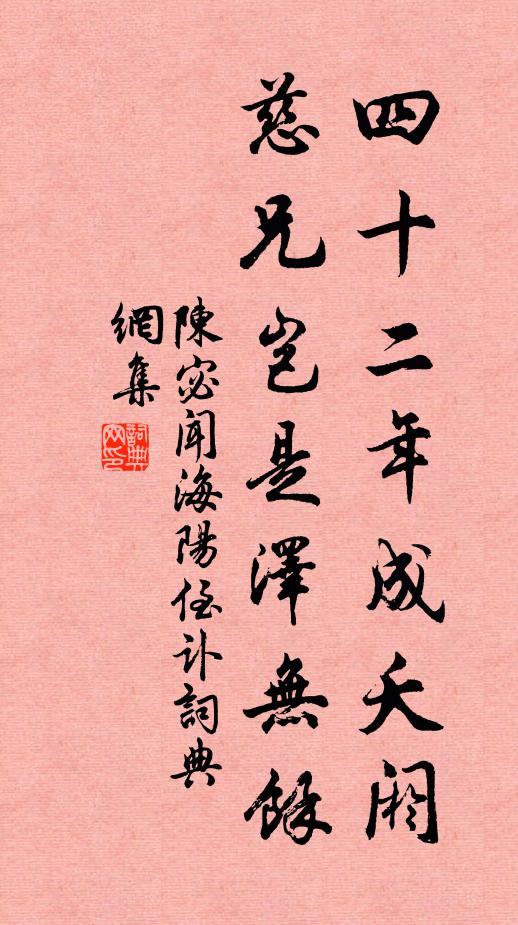 四十二年成夭閼
慈兄豈是澤無餘
陳宓聞海陽侄訃詞典
網集
詞典網印